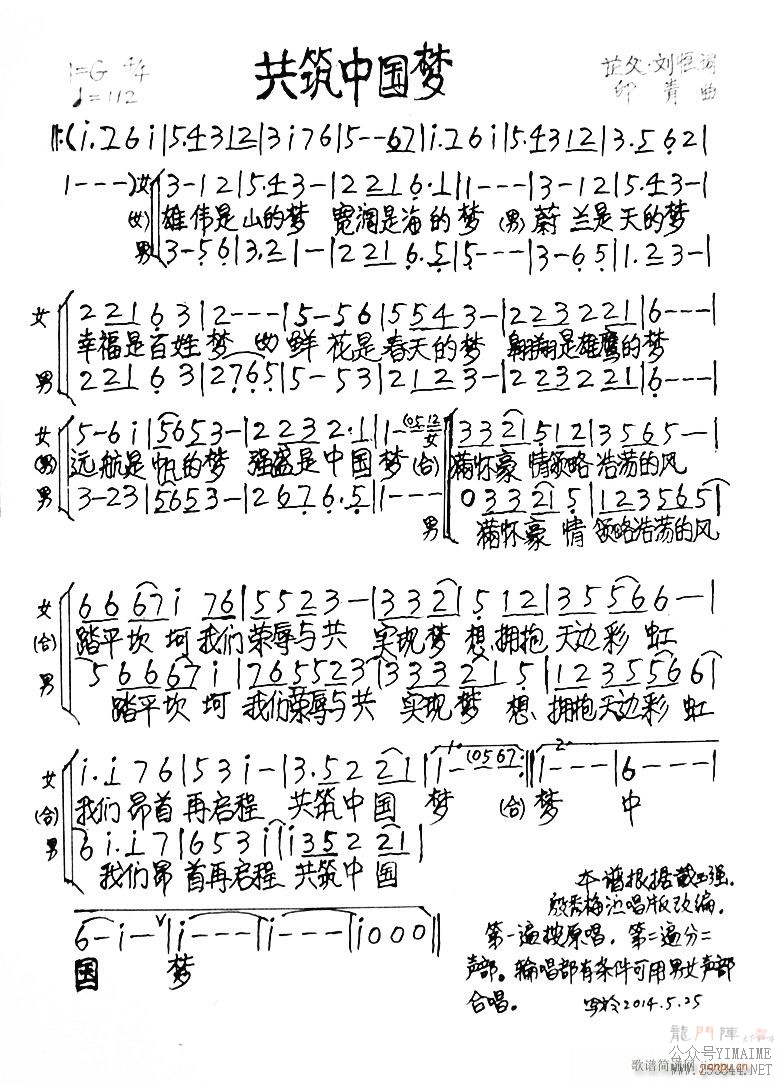 共筑中国梦
1=G 4/4
♩=112
芷父·刘恒词
印青曲
‖:(i.7 6 i|5.4 3 1 2|3 i 7 6|5--6 7|i.7 6 i|5.4 3 1 2|3.5 6 2|
1---)女 3-1 2|5.4 3-|2 2 1 6.1|1---|3-1 2|5.4 3-|
(女)雄伟是山的梦 宽阔是海的梦 (男)蔚兰是天的梦
男 3-5 6|3.2 1-|2 2 1 6.5|5---|3-6 5|1.2 3-|
女 2 2 1 6 3|2---|5-5 6|5 5 4 3-|2 2 3 2 2 1|6---|
幸福是百姓梦 (女)鲜花是春天的梦 翱翔是雄鹰的梦
男 2 2 1 6 3|2 7 6 5|5-5 3|2 1 2 3-|2 2 3 2 2 1|6---|
女 5-6 i|5 6 5 3-|2 2 3 2.1|1-(0 5 1 2 女 3 3 2 1 5 1 2|3 5 6 5--|
(男)远航是帆的梦 强盛是中国梦(合)满怀豪情领略浩荡的风
男 3-2 3|5 6 5 3-|2 6 7 6.5|1---|男 0 3 3 2 1 5|1 2 3 5 6 5|
满怀豪情领略浩荡的风
女 6 6 6 7 i 7 6|5 5 2 3-|3 3 2 1 5 1 2|3 5 5 6 6--|
(合)踏平坎坷我们荣辱与共 实现梦想,拥抱天边彩虹
男 5 6 6 6 7 i|7 6 5 5 2 3|3 3 3 2 1 5|1 2 3 5 5 6 6|
踏平坎坷 我们荣辱与共 实现梦想、拥抱天边彩虹
女 i.i 7 6|5 3 i-|3.5 2 2 1|1. i--(0 5 6 7:‖2. i---|6---|
(合)我们昂首再启程 共筑中国梦 (合)梦 中
男 6 i.i 7|6 5 3 i|i 3 5 2 2 1|
我们昂首再启程 共筑中国
6-i-ᵛ|i---|i---|i---|i 0 0 0‖
国 梦
本谱根据戴玉强.
殷秀梅演唱版改编.
第一遍按原唱. 第二遍分二
声部. 轮唱都有条件可用男女声部
合唱。 写於2014.5.25
龍門陣
公众号YIMAIME
歌谱简谱网 jianpu.cn
www.253344.NET